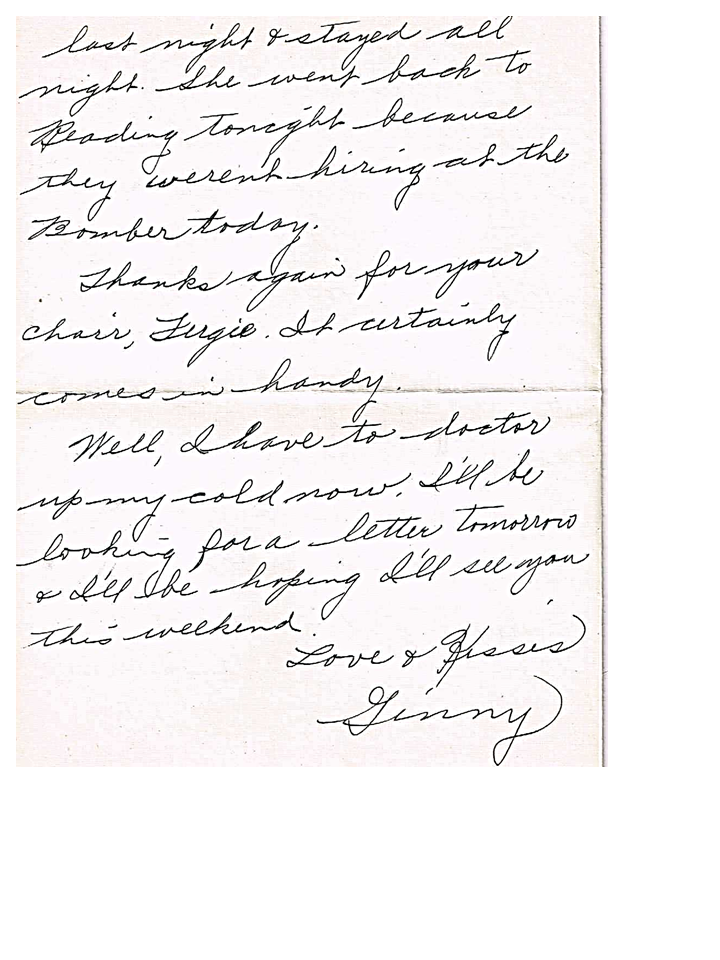 last night & stayed all
night. She went back to
Reading tonight because
they weren't hiring at the
Bomber today.
Thanks again for your
chair, Fergie. It certainly
comes in handy.
Well, I have to doctor
up my cold now. I'll be
looking for a letter tomorrow
& I'll be hoping I'll see you
this weekend.
Love & Kisses
Ginny